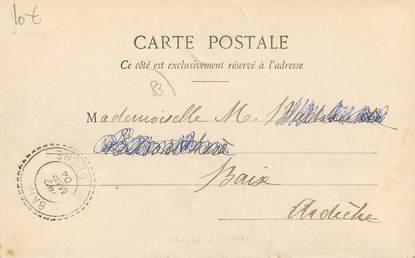 lot
CARTE POSTALE
Ce côté est exclusivement réservé à l'adresse
83
Mademoiselle M.
Baix
Ardèche
BAIX ARDÈCHE